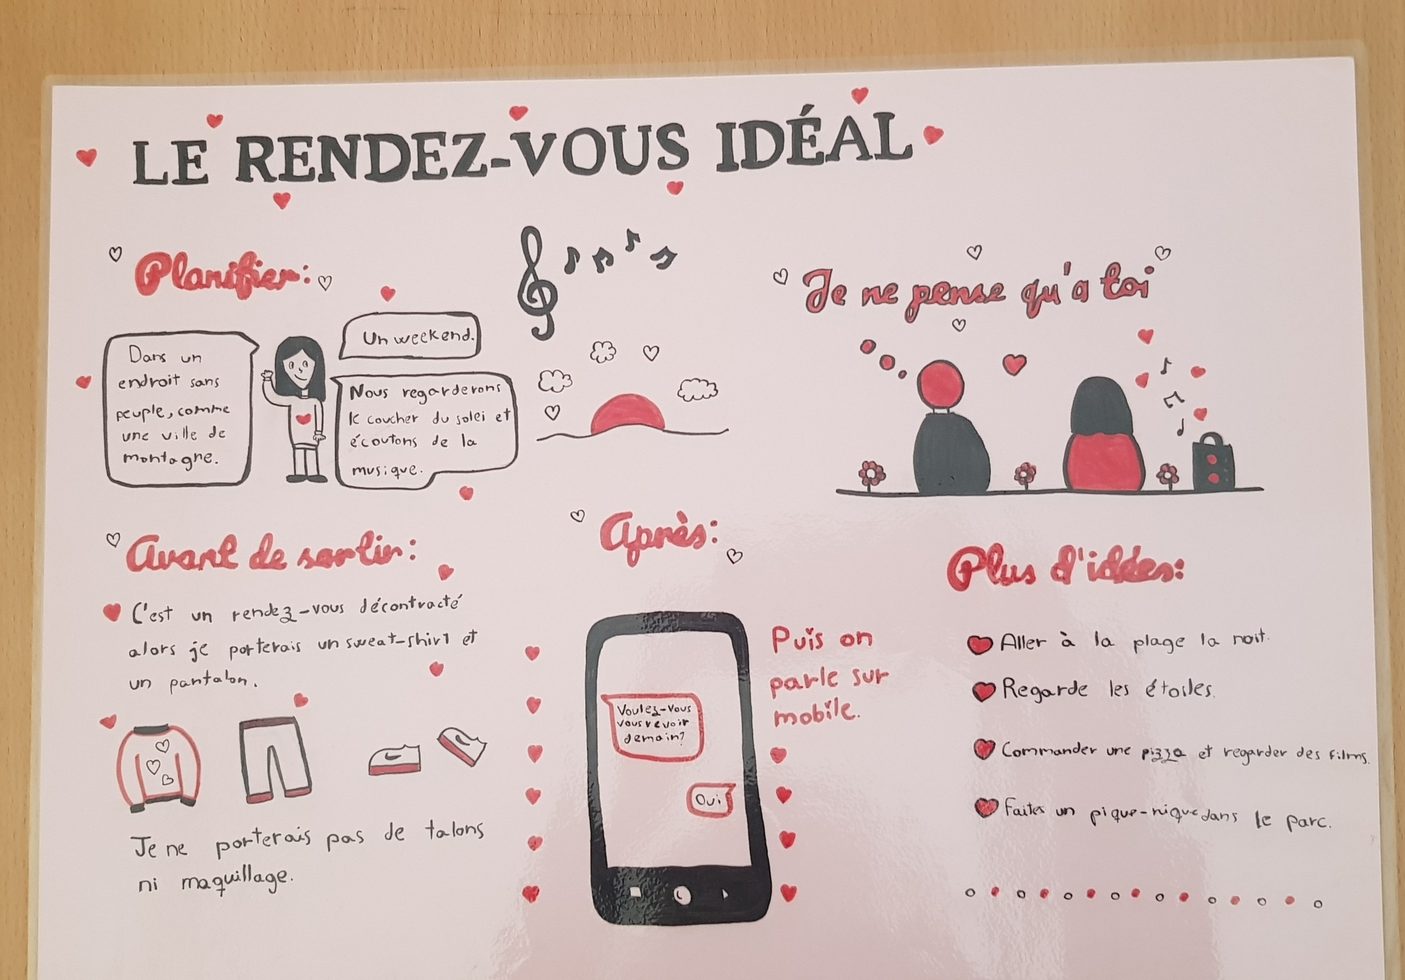 LE RENDEZ-VOUS IDÉAL
Planifier:
Dans un
endroit sans
peuple, comme
une ville de
montagne.
Un weekend.
Nous regarderons
le coucher du solei et
écoutons de la
musique.
Je ne pense qu'a toi
Avant de sortir:
C'est un rendez-vous décontracté
alors je porterais un sweat-shirt et
un pantalon.
Je ne porterais pas de talons
ni maquillage.
Après:
Voulez-vous
vous revoir
demain?
Oui
Puis on
parle sur
mobile.
Plus d'idées:
Aller à la plage la noit.
Regarde les étoiles.
Commander une pizza et regarder des films.
Faites un pique-nique dans le parc.